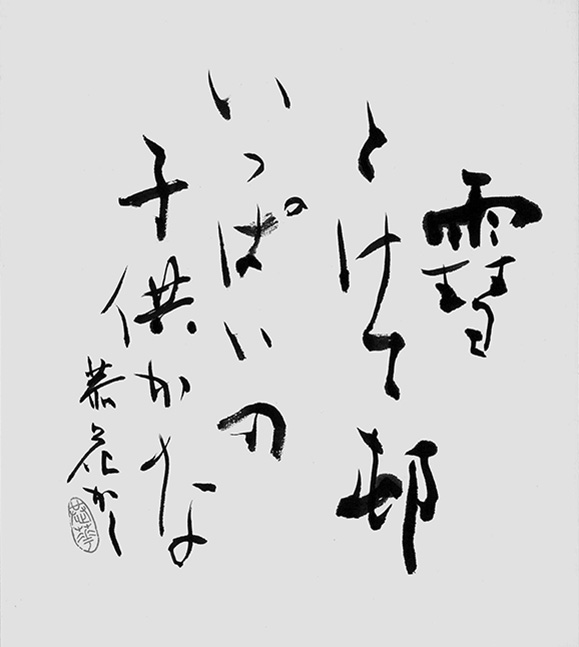 䨮
とけて邨
いっぱいの
子供かな
恭花かく